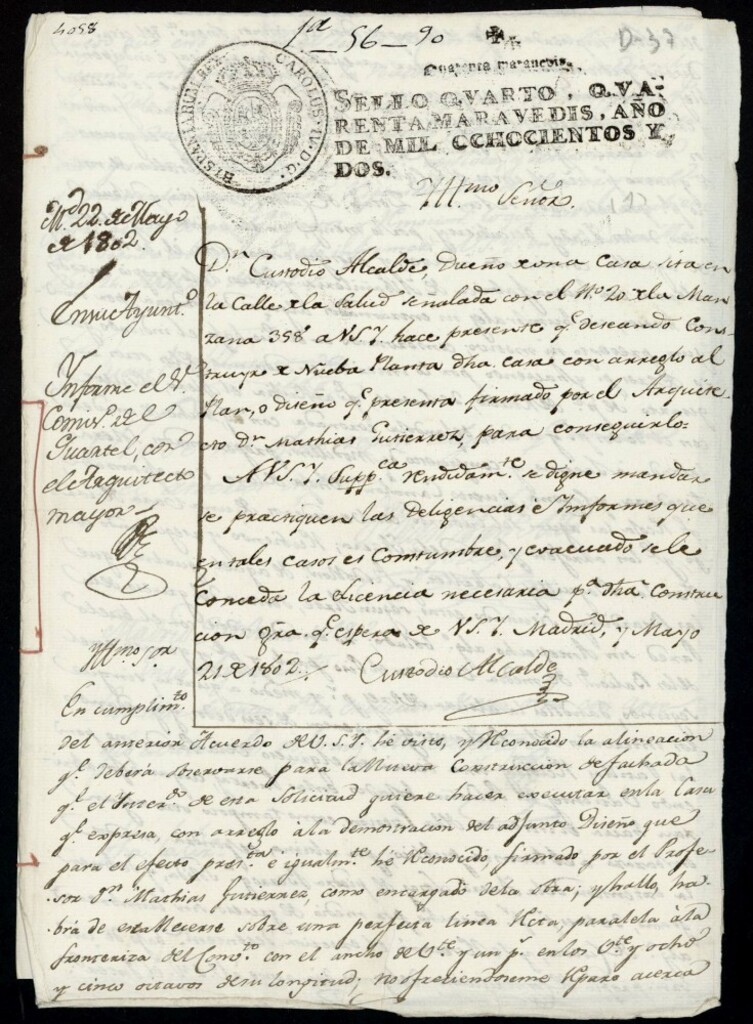 4058
1ª 56-90
D-37
Quarenta maravedis.
SELLO QVARTO, QVA-
RENTA MARAVEDIS, AÑO
DE MIL OCHOCIENTOS Y
DOS.
CAROLUS IV D. G. HISPANIARUM REX
Yllmo Señor.
Md 22 de Mayo
de 1802.
En su Ayuntº
Ynforme el Sr
Comisº del
Quartel, con
el Arquitecto
mayor
Dn Custodio Alcalde, dueño de una casa sita en
la Calle de la Salud señalada con el Nº 20 de la Man
zana 358 a VSY. hace presente qe deseando Cons
truyr de Nueba Planta dha casa con arreglo al
Plan, o diseño qe presenta firmado por el Arquite
cto dn Mathias Gutierrez, para conseguirlo=
A VS.Y. Suppca rendidamte se digne mandar
se practiquen las deligencias é Ynformes que
en tales casos es Comstumbre, y evacuado se le
Conceda la Licencia necesaria pa dha Construc
cion gra qe espera de VS.Y. Madrid, y Mayo
21 de 1802.
Custodio Alcalde
Yllmo Sor
En cumplimto
del anterior Acuerdo de V.S.Y. hé visto, y Reconocido la alineacion
qe. deberá observarse para la Nueva Construccion de fachada
qe el Yntersdo de esta Solicitud quiere hacer executar en la Casa
qe expresa, con arreglo à la demostracion del adjunto Diseño que
para el efecto presta é igualmte hé Reconocido, firmado por el Profe-
sor Dn Mathias Gutierrez, como encargado de la obra; y hallo, ha-
brá de establecerse sobre una perfecta linea Recta, paralela à la
fronteriza del Convto con el ancho de Vte y un p. en los Vte y ocho
y cinco octavos de su longitud; no ofreciendoseme Reparo acerca